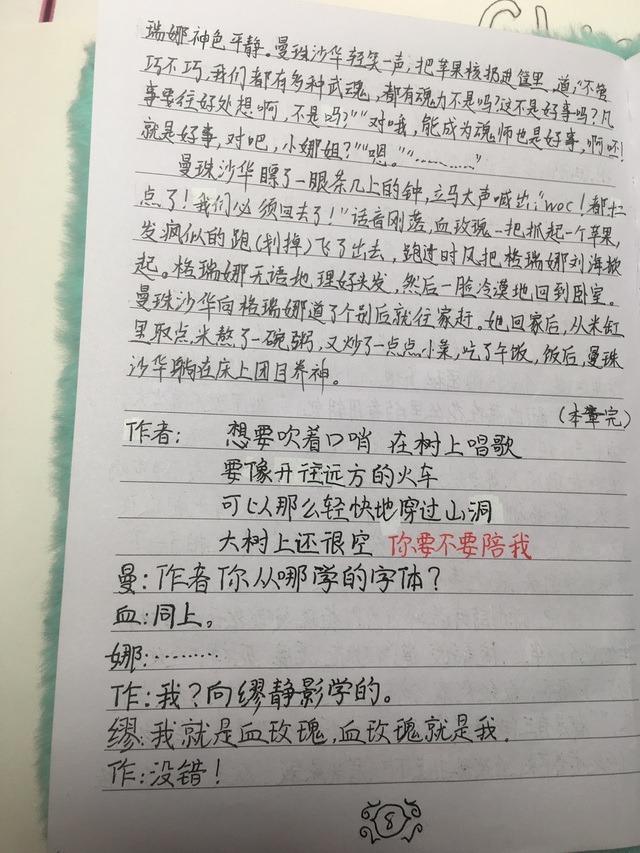 瑞娜神色平静。曼珠沙华轻笑一声,把苹果核扔进筐里,道:“不管
巧不巧,我们都有多种武魂,都有魂力不是吗?这不是好事吗?凡
事要往好处想啊,不是吗?”“对哦,能成为魂师也是好事,啊呸!
就是好事,对吧,小娜姐?”“嗯。”“………”
曼珠沙华瞟了一眼茶几上的钟,立马大声喊出:“woc!都十二
点了!我们必须回去了!”话音刚落,血玫瑰一把抓起一个苹果,
发疯似的跑(划掉)飞了出去,跑过时风把格瑞娜刘海掀
起。格瑞娜无语地理好头发,然后一脸冷漠地回到卧室。
曼珠沙华向格瑞娜道了个别后就往家赶。她回家后,从米缸
里取点米熬了一碗粥,又炒了一点点小菜,吃了午饭,饭后,曼珠
沙华躺在床上团目养神。
(本章完)
作者: 想要吹着口哨 在树上唱歌
要像开往远方的火车
可以那么轻快地穿过山洞
大树上还很空 你要不要陪我
曼:作者你从哪学的字体?
血:同上。
娜:………
作:我?向缪静影学的。
缪:我就是血玫瑰,血玫瑰就是我.
作:没错!
8